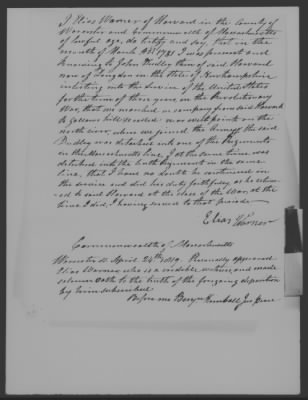 I Elias Warner of Harvard in the County of
Worcester and Commonwealth of Massachusetts
of lawful age, do testify and say, that in the
month of March AD 1781 I was present and
knowing to John Dudley then of said Harvard
now of Langdon in the State of Newhampshire
enlisting into the Service of the United States
for the term of three years, in the Revolution
War, that we marched in company from said Harvard
to gallows hill so called near west point on the
north river, where we joined the Army, the said
Dudley was detached into one of the Regiments
in the Massachusetts line, I at the same time was
detached into the tenth regiment in the same
line, that I have no doubt he continued in
the service and did his duty faithfully, as he returned
to said Harvard at the close of the War, at the
time I did, I having served to that period
Elias Warner
Commonwealth of Massachusetts
Worcester ss April 24th 1819. Personally appeared
Elias Warner, who is a credible witness, and made
solemn oath to the truth of the foregoing deposition
by him subscribed
Before me Benjn Kimball Jus. Peace